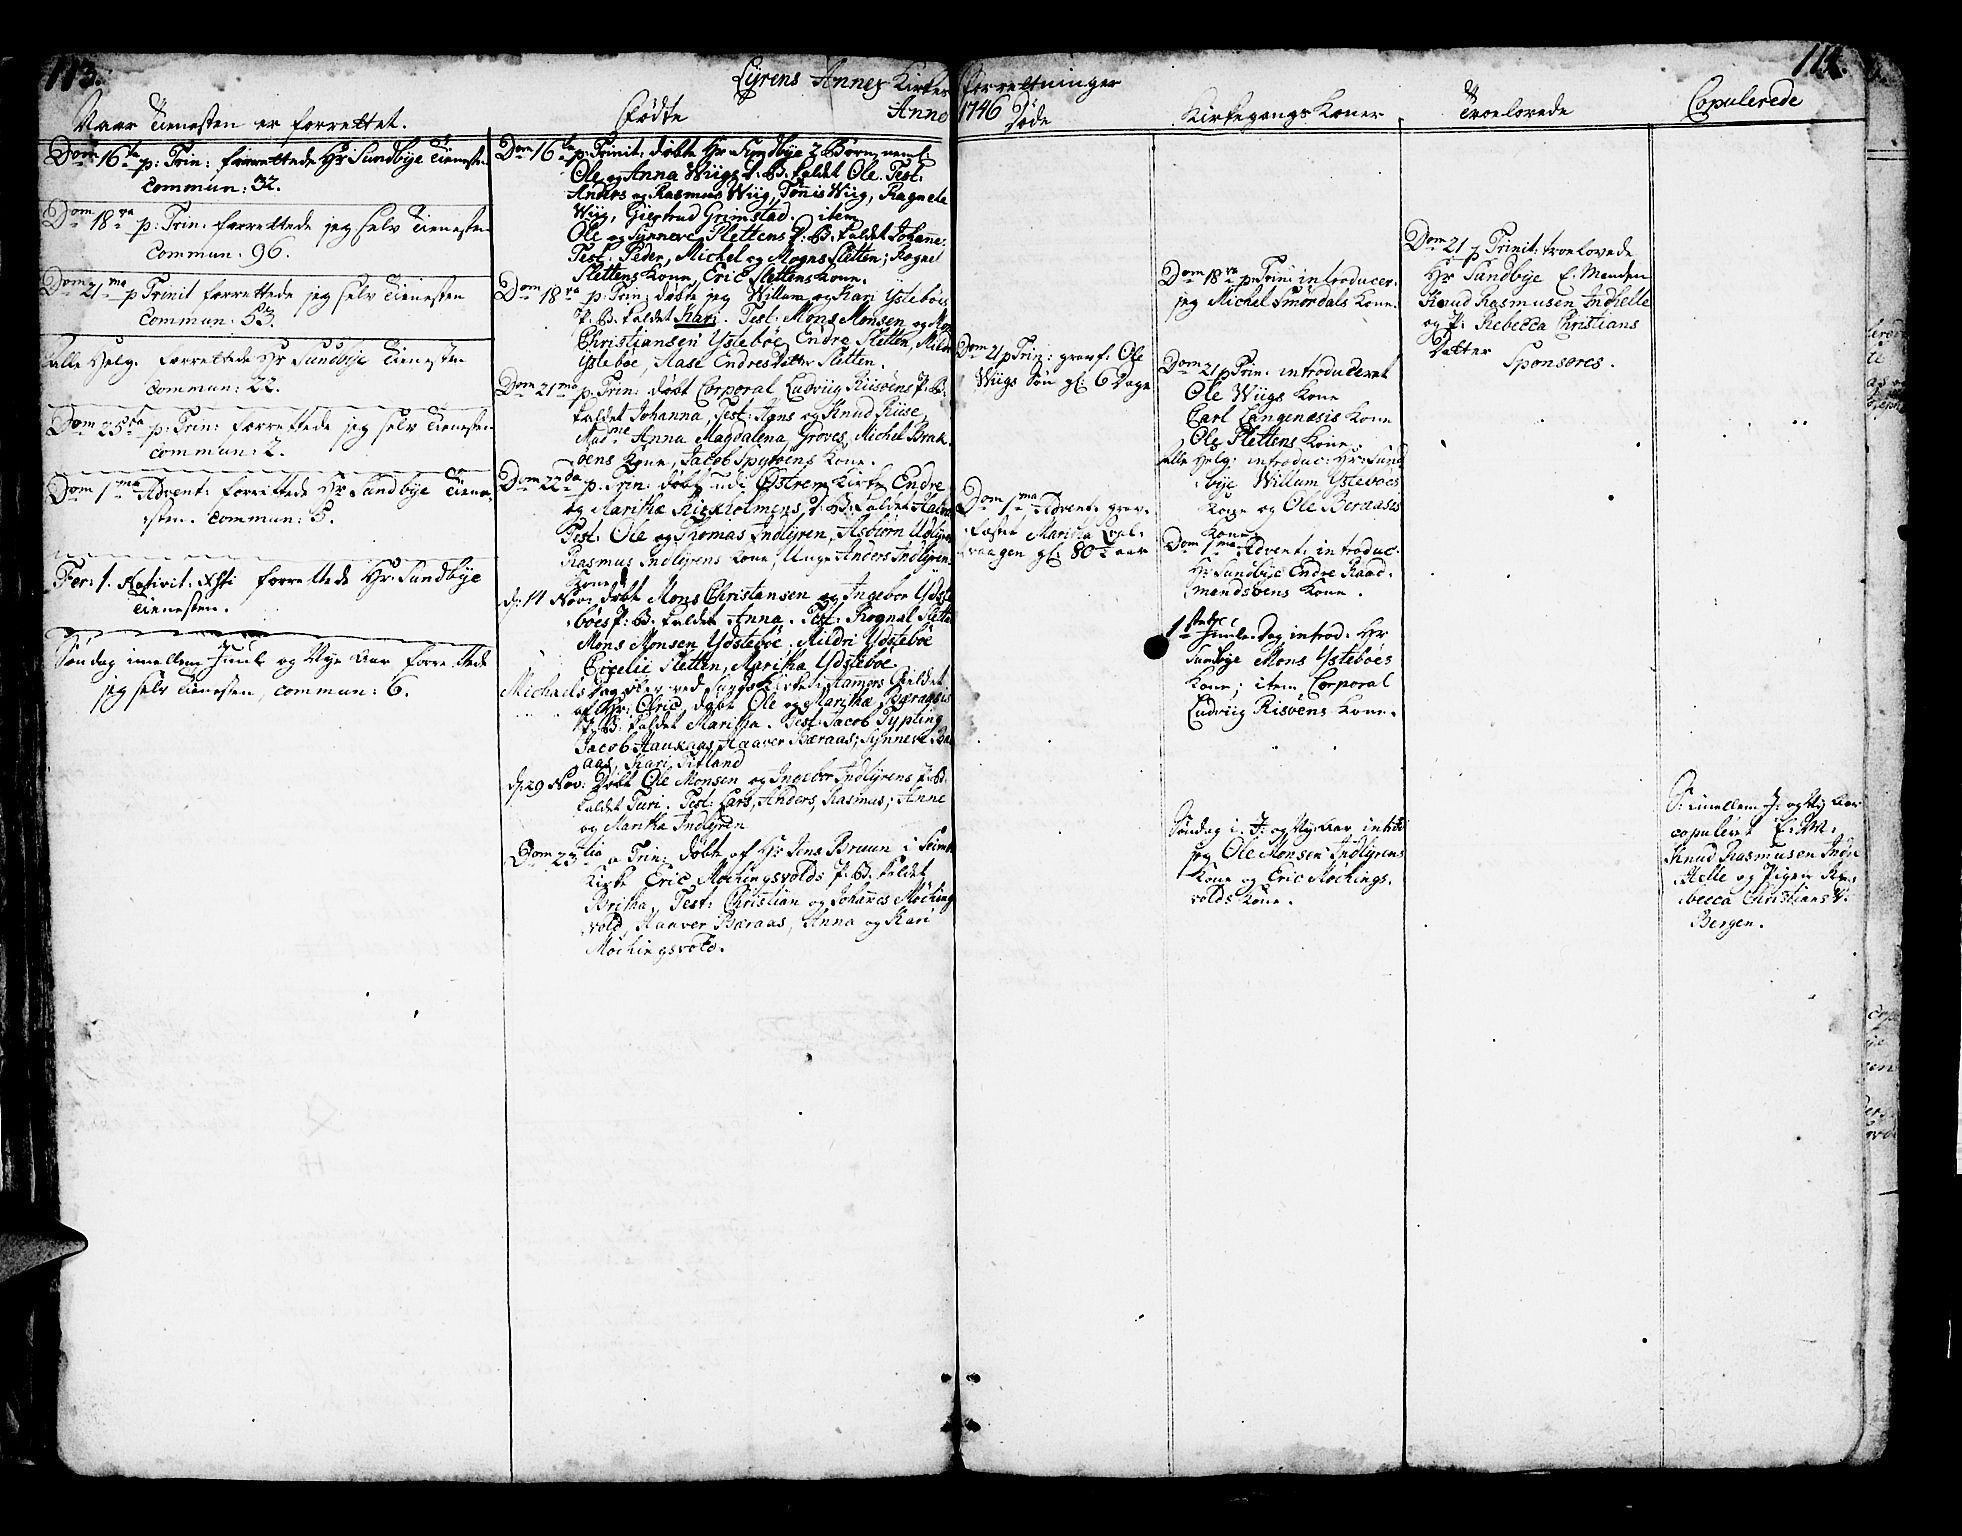 113.
114.
Lÿrens Annex Kirkes Forrettninger
Anno 1746
Naar Tienesten er forrettet.
Dom 16 ta p: Trin: forrettede Hr Sundbÿe Tienesten
Commun: 32.
Dom 18 va p: Trin: forrettede jeg selv Tienesten
Commun: 96.
Dom 21 ma p Trinit forrettede jeg selv Tienesten
Commun: 53.
alle Helg. forrettede Hr Sundbÿe Tienesten
Commun: 22.
Dom 25 ta p: Trin: forrettede jeg selv Tienesten
Commun: 2.
Dom 1 ma Advent: forrettede Hr Sandbÿe Tiene-
sten. Commun: 5.
Fer: 1. Nativit: Xsti forrettede Hr Sundbÿe
Tienesten.
Søndag imellem Juul og Nye Aar forrettede
jeg selv Tienesten, commun: 6.
Fødte
Dom 16 ta p: Trinit: døbte Hr Sundbÿe 2 Børn, neml:
Ole og Anna Wiigs d: B: kaldet Ole. Test:
Anders og Rasmus Wiig, Tønnis Wiig, Ragnele
Wiig, Giertrud Grimstad. item
Ole og Sÿnneve Slettens d: B: kaldet Johanne.
Test: Peder, Michel og Mogns Sletten; Rognel
Slettens Kone, Eric Slettens Kone.
Dom 18 va p: Trin: døbte jeg Willum og Kari Ÿstebøes
P: B: kaldet Kari. Test: Mons Monsen og Mons
Christiansen Ÿstebøe, Endre Sletten, Mildri
Ÿstebøe, Aase EndresDatter Sletten.
Dom 21 ma p: Trin: døbt Corporal Ludviig Riisøens P: B:
kaldet Johanna, Test: Hans og Knud Riise,
Madme Anna Magdalena Groves, Michel Brak-
øens Kone, Jacob Spÿrøens Kone.
Dom 22 da p: Trin: døbt udi Østrem Kirke Endre
og Marithæ Kiexholmens, d: B: kaldet
Test: Ole og Thomas Indlÿren, Asbiørn Udlÿren
Rasmus Indlÿrens Kone, Unge Anders Indlÿrens
Kone.
d: 14 Nov: døbt Mons Christansen og Ingebor Ÿdste-
bøes P: B: kaldet Anna. Test: Rognal Sletten
Mons Monsen Ÿdstebøe, Mildri Ÿdstebøe
Cicelie Sletten, Maritha Ÿdstebøe.
Michaels Dag blev ved Sunds Kirke i Hammers Gieldet
af Hr: Olric, døbt Ole og Marithæ Bæraasis
P: B: kaldet Maritha. Test: Jacob Tÿpling
Jacob Haukaas, Haaver Bæraas; Sÿnneve Bær-
aas, Kari Titland
d: 29 Nov: Døbt Ole Monsen og Ingebor Indlÿrens P: B:
kaldet Turi. Test: Lars, Anders, Rasmus; Anne
og Maritha Indlÿren
Dom 23 tia p Trin: døbte af Hr Jens Bruun i Seims
Kirke Eric Møchingsvolds P: B: kaldet
Britha. Test: Christian og Johannes Møching
vold, Haaver Bæraas, Anna og Kari
Møchingsvold.
Døde
Dom 21 p Trin: gravf: Ole
Wiigs Søn gl: 6 Dage
Dom 1 ma Advent: grav-
fæstet Maritha
vaagen gl: 80 aar
Kirkegangs Koner
Dom 18 va p: Trin: introducer.
jeg Michel Smørdals Kone.
Dom 21 p Trin: introduceret
Ole Wiigs Kone
Carl Langenæsis Kone
Ole Slettens Kone.
Alle Helg: introduc: Hr: Sund
bÿe Willum Ÿstebøes
Kone og Ole Beraasis
Kone
Dom 1 ma Advent: introduc:
Hr Sundbÿe Endre Raad-
mandsøens Kone.
1 ste Juule Dag introd: Hr
Sundbÿe Mons Ÿstebøes
Kone; item Corporal
Ludviig Risøens Kone.
Søndag i. J: og Nÿ Aar introd
jeg Ole Monsen Indlÿrens
Kone og Eric Møchings-
volds Kone.
Troelovede
Dom 21 p Trinit: troelovede
Hr Sundbÿe E. Manden
Knud Rasmusen Indhelle
og P: Rebecca Christians
Datter Sponsores.
Copulerede
S: imellem J: og Nÿ Aar
copuleret E: M:
Knud Rasmusen Inde
Helle og Pigen Re-
becca Christians D:
Bergen.